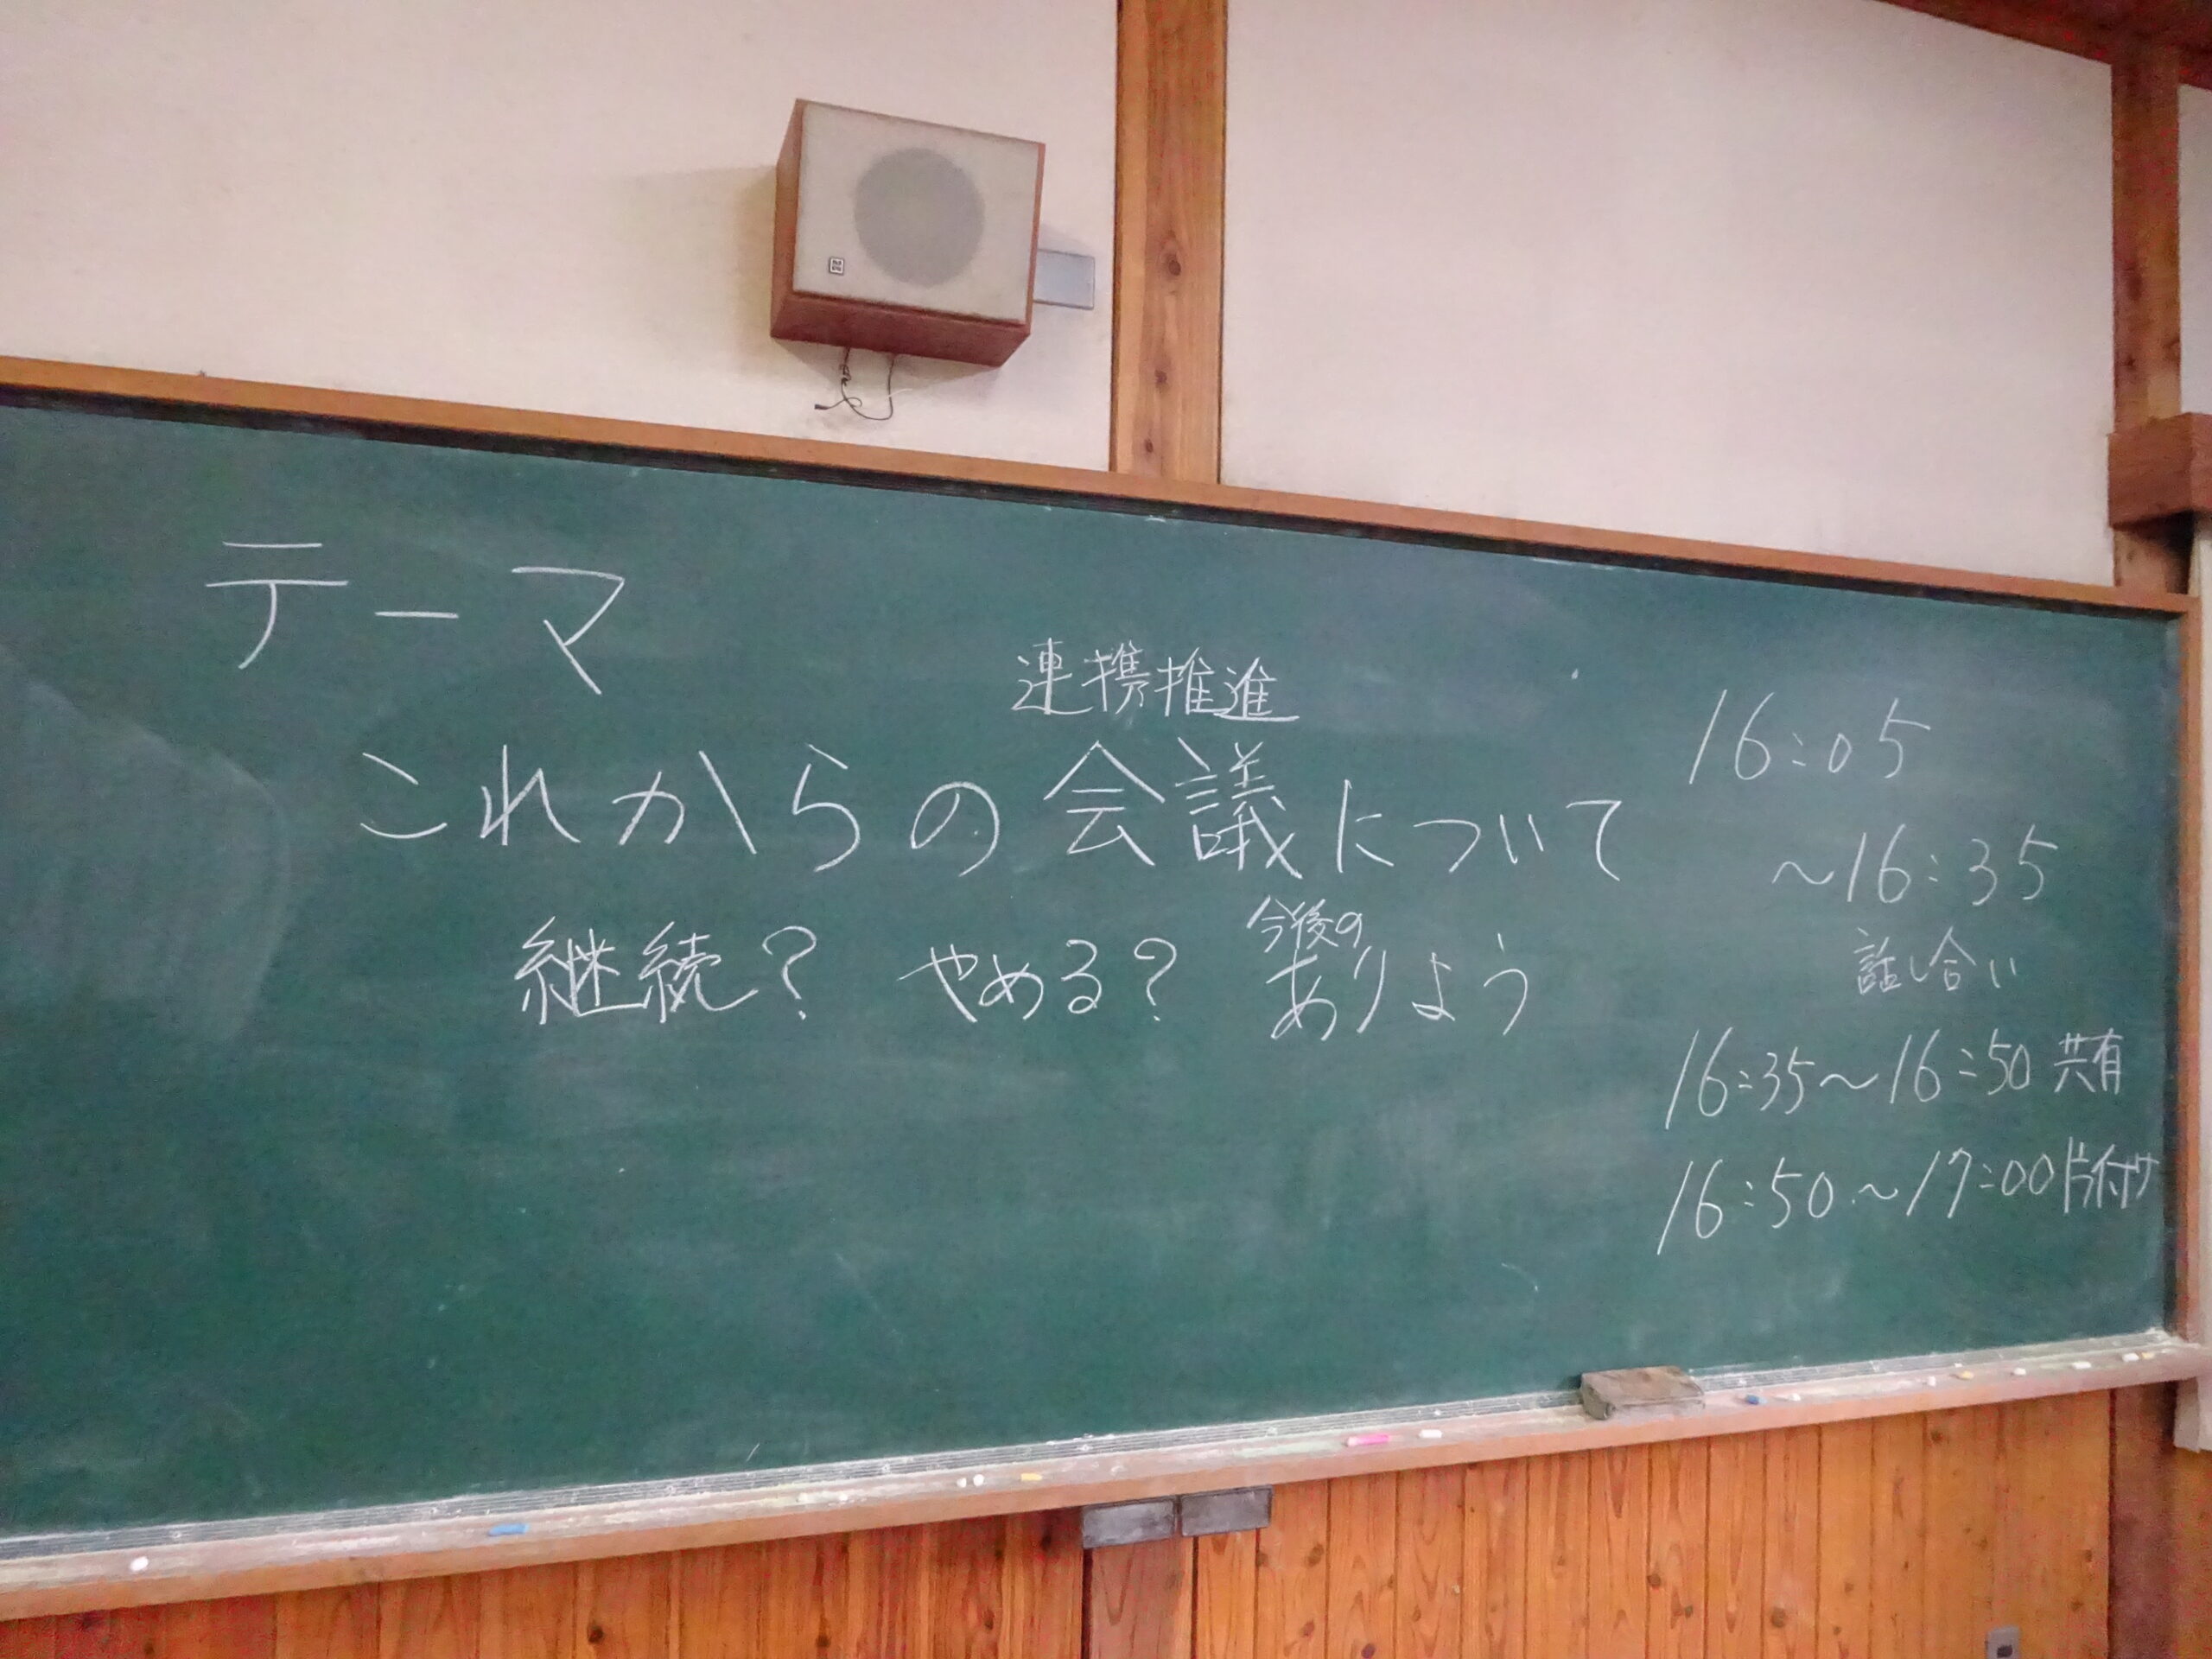 テーマ
連携推進
これからの会議について
継続? やめる? 今後の
ありよう
16:05
～16:35
話し合い
16:35～16:50 共有
16:50～17:00 片付け